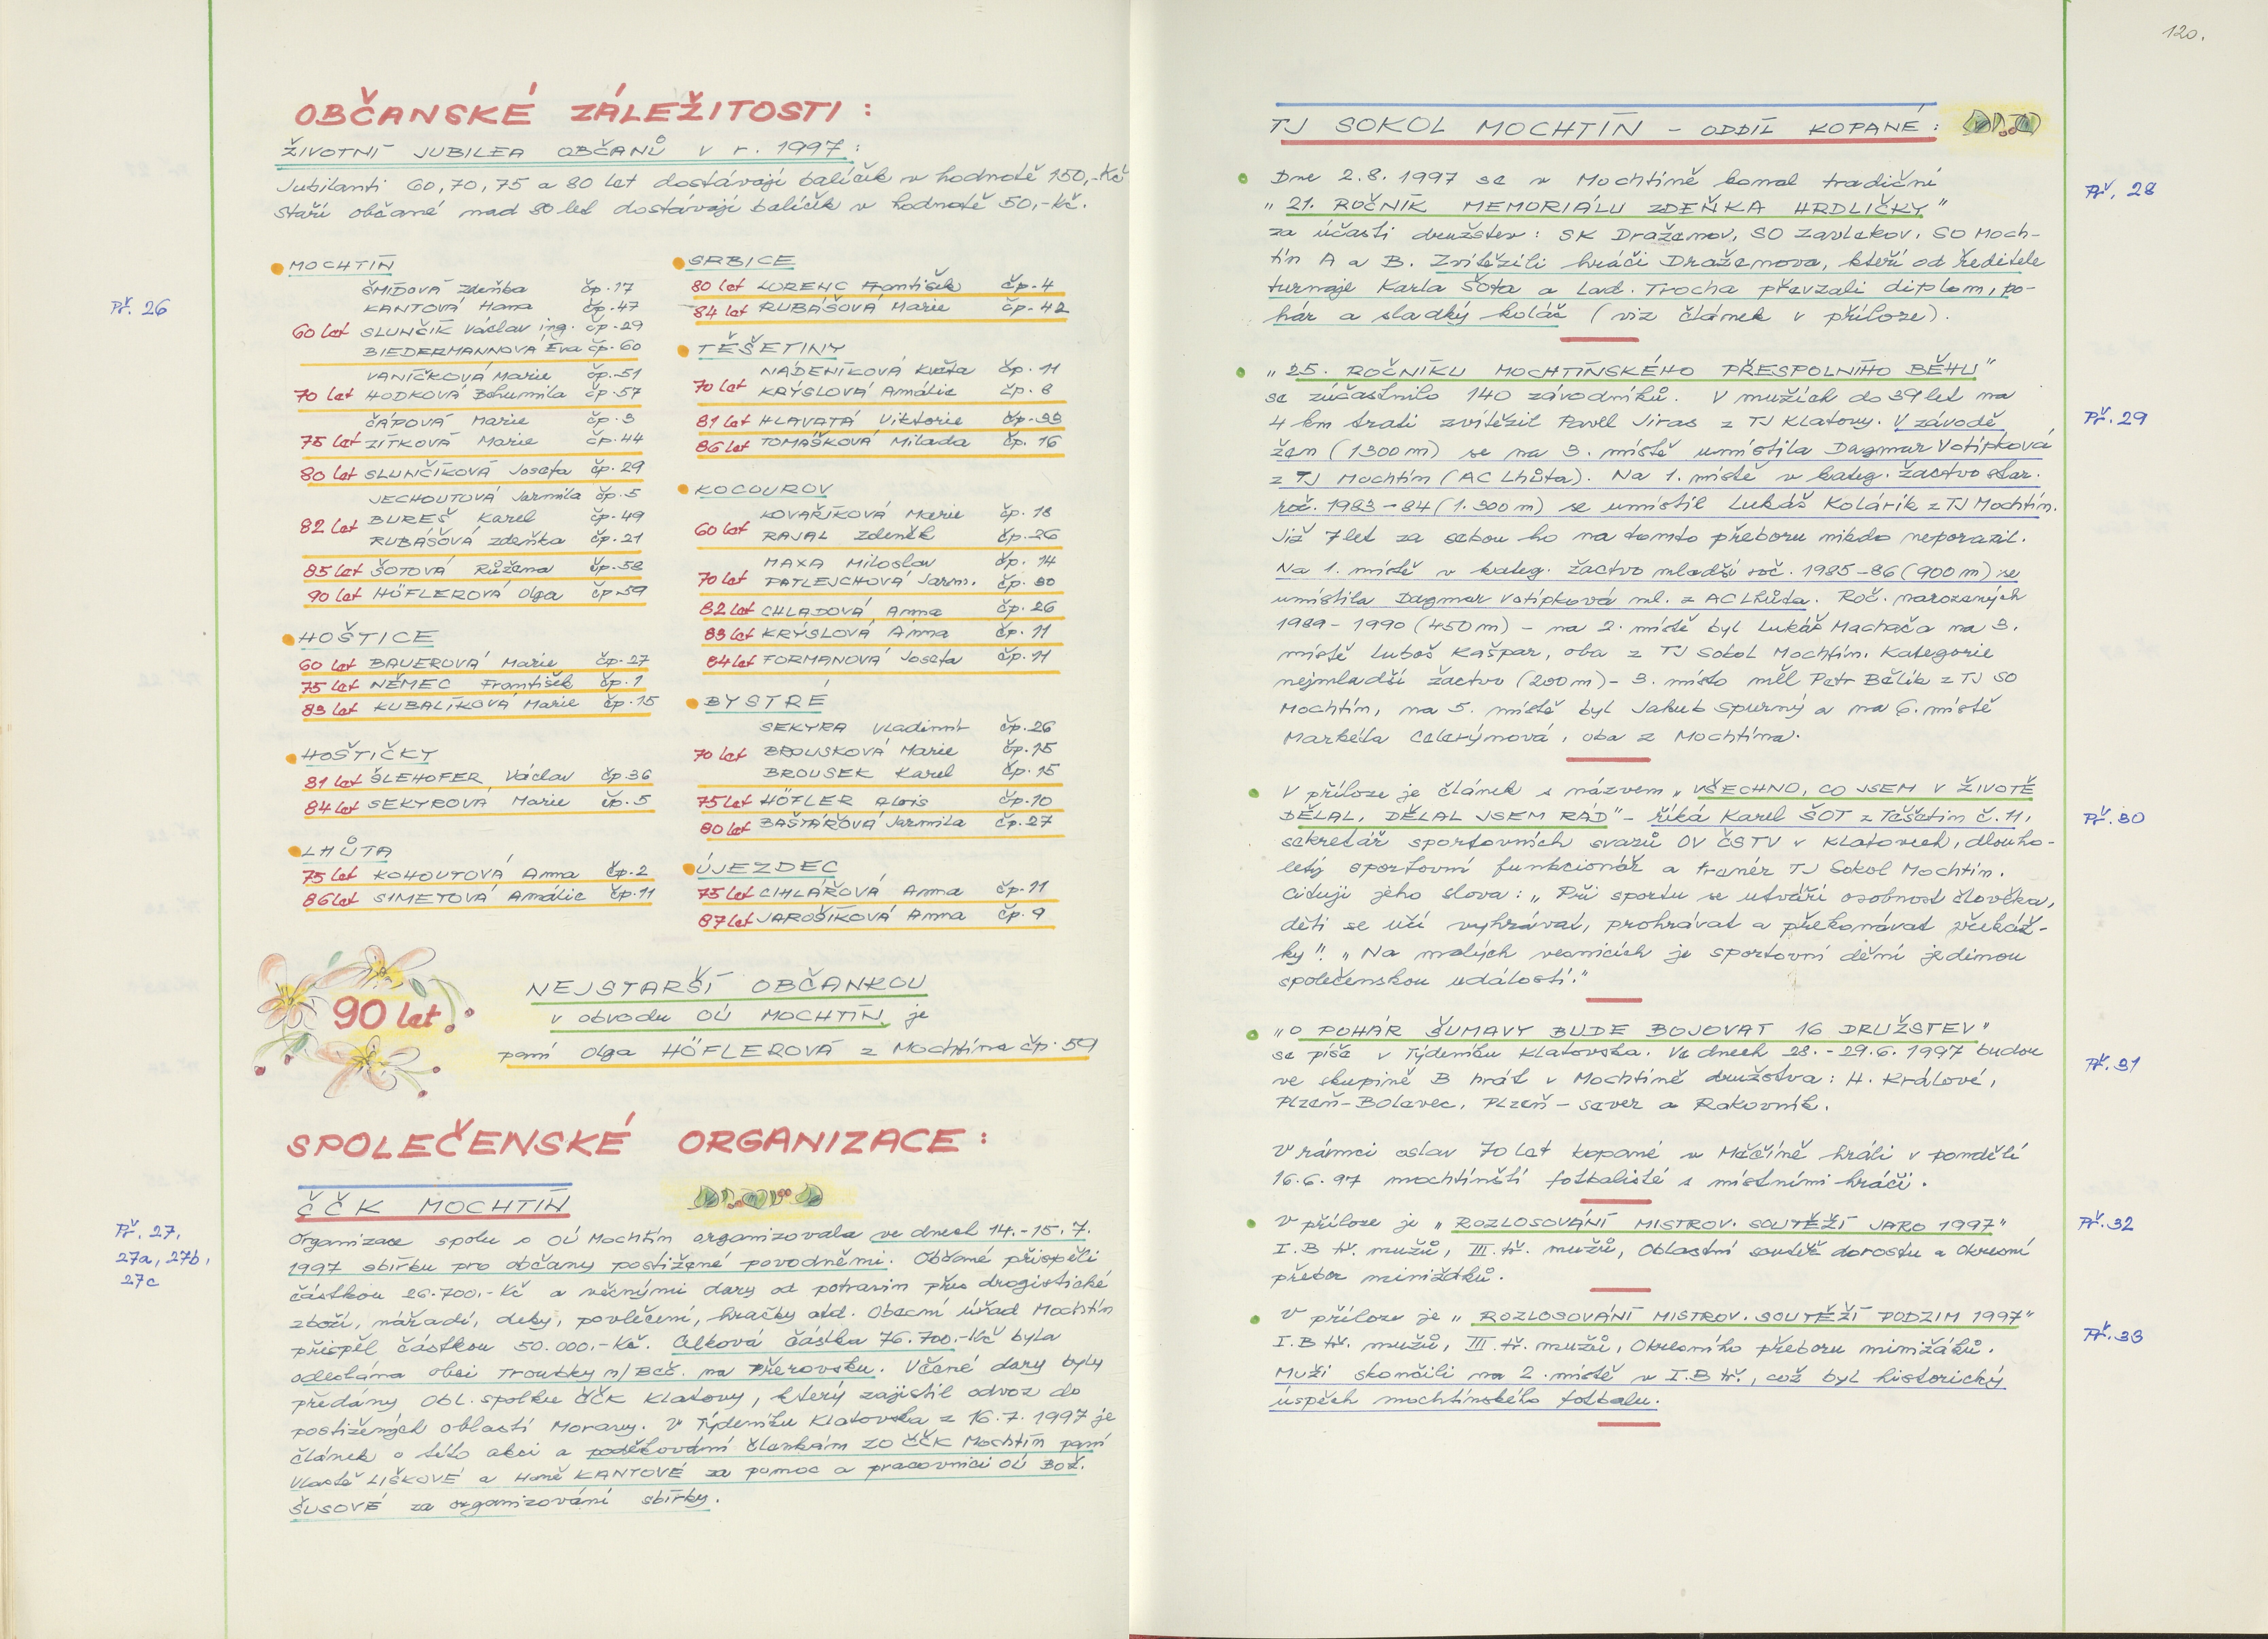 OBČANSKÉ ZÁLEŽITOSTI :
ŽIVOTNÍ JUBILEA OBČANŮ v r. 1997 :
Jubilanti 60, 70, 75 a 80 let dostávají balíček v hodnotě 150,-Kč
Staří občané nad 80 let dostávají balíček v hodnotě 50,-Kč.
Př. 26
MOCHTÍN
ŠMÍDOVÁ Zdeňka čp. 17
KANTOVÁ Hana čp. 47
60 let SLUNČÍK Václav ing. čp. 29
BIEDERMANNOVÁ Eva čp. 60
VANÍČKOVÁ Marie čp. 51
70 let HODKOVÁ Bohumila čp. 57
ČÁPOVÁ Marie čp. 3
75 let ZÍTKOVÁ Marie čp. 44
80 let SLUNČÍKOVÁ Josefa čp. 29
JECHOUTOVÁ Jarmila čp. 5
82 let BUREŠ Karel čp. 49
RUBÁŠOVÁ Zdeňka čp. 21
85 let ŠOTOVÁ Růžena čp. 58
90 let HÖFLEROVÁ Olga čp. 59
HOŠTICE
60 let BAUEROVÁ Marie čp. 27
75 let NĚMEC František čp. 1
83 let KUBALÍKOVÁ Marie čp. 15
HOŠTIČKY
81 let ŠLEHOFER Václav čp 36
84 let SEKYROVÁ Marie čp. 5
LHŮTA
75 let KOHOUTOVÁ Anna čp. 2
86 let SIMETOVÁ Amálie čp. 11
SRBICE
80 let LORENC František čp. 4
84 let RUBÁŠOVÁ Marie čp. 42
TĚŠETINY
NÁDENÍKOVÁ Květa čp. 11
70 let KRÝSLOVÁ Amálie čp. 8
81 let HLAVATÁ Viktorie čp. 33
86 let TOMÁŠKOVÁ Milada čp. 16
KOCOUROV
KOVAŘÍKOVÁ Marie čp. 18
60 let RAJAL Zdeněk čp. 26
MAXA Miloslav čp. 14
70 let PATLEJCHOVÁ Jarm. čp. 30
82 let CHLADOVÁ Anna čp. 26
83 let KRÝSLOVÁ Anna čp. 11
84 let FORMANOVÁ Josefa čp. 11
BYSTRÉ
SEKYRA Vladimír čp. 26
70 let BROUSKOVÁ Marie čp. 15
BROUSEK Karel čp. 15
75 let HÖFLER Alois čp. 10
80 let BAŠTÁŘOVÁ Jarmila čp. 27
ÚJEZDEC
75 let CHLÁŘOVÁ Anna čp. 11
87 let JAROŠÍKOVÁ Anna čp. 9
90 let
NEJSTARŠÍ OBČANKOU
v obvodu OÚ MOCHTÍN je
paní Olga HÖFLEROVÁ z Mochtína čp. 59
SPOLEČENSKÉ ORGANIZACE :
ČČK MOCHTÍN
Př. 27,
27a, 27b,
27c
Organizace spolu s OÚ Mochtín organizovala ve dnech 14.-15.7.
1997 sbírku pro občany postižené povodněmi. Občané přispěli
částkou 26.700,-Kč a věcnými dary od potravin přes drogistické
zboží, nářadí, deky, povlečení, hračky atd. Obecní úřad Mochtín
přispěl částkou 50.000,-Kč. Celková částka 76.700,-Kč byla
odeslána obci Troubky n/Beč. na Přerovsku. Věcné dary byly
předány Obl. spolku ČČK Klatovy, který zajistil odvoz do
postižených oblastí Moravy. V Týdeníku Klatovska z 16.7.1997 je
článek o této akci a poděkování členkám ZO ČČK Mochtín paní
Vlastě LIŠKOVÉ a Haně KANTOVÉ za pomoc a pracovnici OÚ Bož.
ŠUSOVÉ za organizování sbírky.
120.
TJ SOKOL MOCHTÍN - ODDÍL KOPANÉ :
Př. 28
Dne 2.8. 1997 se v Mochtíně konal tradiční
„ 21. ROČNÍK MEMORIÁLU ZDEŇKA HRDLIČKY "
za účasti družstev : SK Draženov, SO Zavlekov, SO Moch-
tín A a B. Zvítězili hráči Draženova, kteří od ředitele
turnaje Karla Šota a Lad. Trocha převzali diplom, po-
hár a sladký koláč (viz článek v příloze).
Př. 29
„ 25. ROČNÍKU MOCHTÍNSKÉHO PŘESPOLNÍHO BĚHU "
se zúčastnilo 140 závodníků. V mužích do 39 let na
4 km trati zvítězil Pavel Jiras z TJ Klatovy. V závodě
žen (1300 m) se na 3. místě umístila Dagmar Votípková
z TJ Mochtín (AC Lhůta). Na 1. místě v kateg. žactvo star.
roč. 1983-84 (1.300 m) se umístil Lukáš Kolárik z TJ Mochtín.
Již 7 let za sebou ho na tomto přeboru nikdo neporazil.
Na 1. místě v kateg. žactvo mladší roč. 1985-86 (900 m) se
umístila Dagmar Votípková ml. z AC Lhůta. Roč. narozených
1989 - 1990 (450 m) - na 2. místě byl Lukáš Machača na 3.
místě Luboš Kašpar, oba z TJ Sokol Mochtín. Kategorie
nejmladší žactvo (200 m) - 3. místo měl Petr Bělík z TJ SO
Mochtín, na 5. místě byl Jakub Spurný a na 6. místě
Markéta Celerýnová, oba z Mochtína.
Př. 30
V příloze je článek s názvem „ VŠECHNO, CO JSEM V ŽIVOTĚ
DĚLAL, DĚLAL JSEM RÁD" - říká Karel ŠOT z Těšetin č. 11,
sekretář sportovních svazů OV ČSTV v Klatovech, dlouho-
letý sportovní funkcionář a trenér TJ Sokol Mochtín.
Cituji jeho slova : „ Při sportu se utváří osobnost člověka,
děti se učí vyhrávat, prohrávat a překonávat překáž-
ky". „ Na malých vesnicích je sportovní dění jedinou
společenskou událostí."
Př. 31
„ O POHÁR ŠUMAVY BUDE BOJOVAT 16 DRUŽSTEV "
se píše v Týdeníku Klatovska. Ve dnech 28. - 29.6. 1997 budou
ve skupině B hrát v Mochtíně družstva : H. Králové,
Plzeň-Bolevec, Plzeň - sever a Rakovník.
V rámci oslav 70 let kopané v Měčíně hráli v pondělí
16.6.97 mochtínští fotbalisté s místními hráči.
Př. 32
V příloze je „ ROZLOSOVÁNÍ MISTROV. SOUTĚŽÍ JARO 1997 "
I. B tř. mužů, III. tř. mužů, Oblastní soutěž dorostu a Okresní
přebor minižáků.
Př. 33
V příloze je „ ROZLOSOVÁNÍ MISTROV. SOUTĚŽÍ PODZIM 1997 "
I. B tř. mužů, III. tř. mužů, Okresního přeboru minižáků.
Muži skončili na 2. místě v I. B tř., což byl historický
úspěch mochtínského fotbalu.